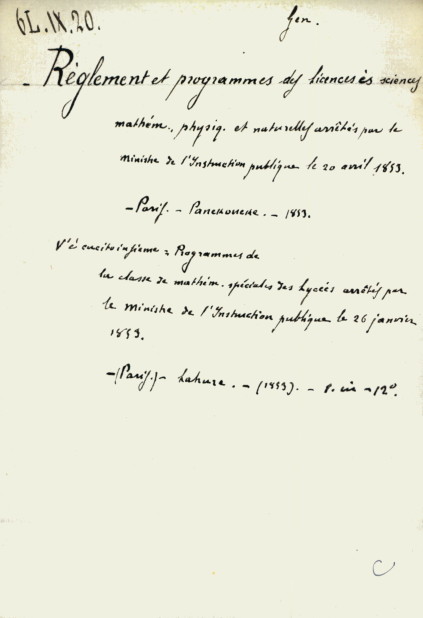 6L.IX.20.
Gen.
- Règlement et programmes des licences ès sciences
mathém., physiq. et naturelles arrêtés par le
Ministre de l'Instruction publique le 20 avril 1853.
- Paris. - Panckoucke. - 1853.
V'è cucito insieme = Programmes de
la classe de mathém. spéciales des Lycées arrêtés par
le Ministre de l'Instruction publique le 26 janvier
1853.
- (Paris.) - Lahure. - (1853). - in - 12°.
C